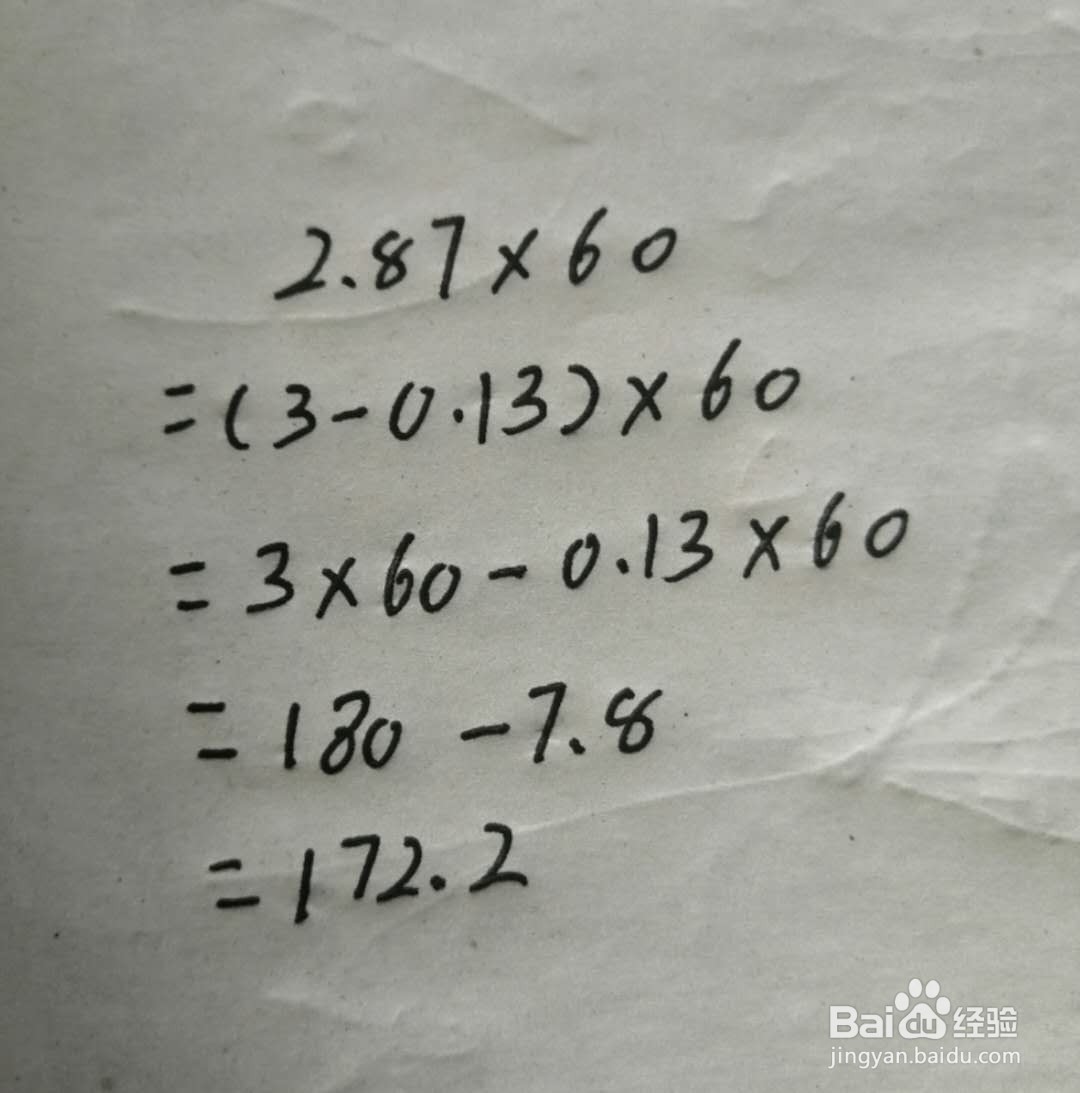 2.87×60
=(3-0.13)×60
=3×60-0.13×60
=180-7.8
=172.2
Baidu经验
jingyan.baidu.com